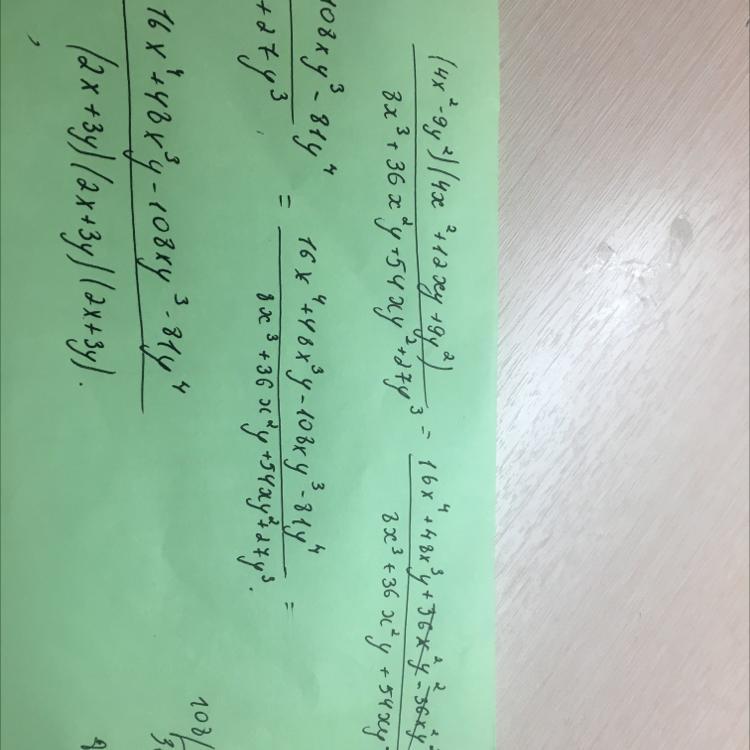 (4x²-9y²)(4x²+12xy+9y²) / 8x³+36x²y+54xy²+27y³ = 16x⁴+48x³y+36x²y²-36xy² / 8x³+36x²y+54xy
108xy³-81y⁴ / +27y³ = 16x⁴+48x³y-108xy³-81y⁴ / 8x³+36x²y+54xy²+27y³. =
16x⁴+48x³y-108xy³-81y⁴ / (2x+3y)(2x+3y)(2x+3y).
108/